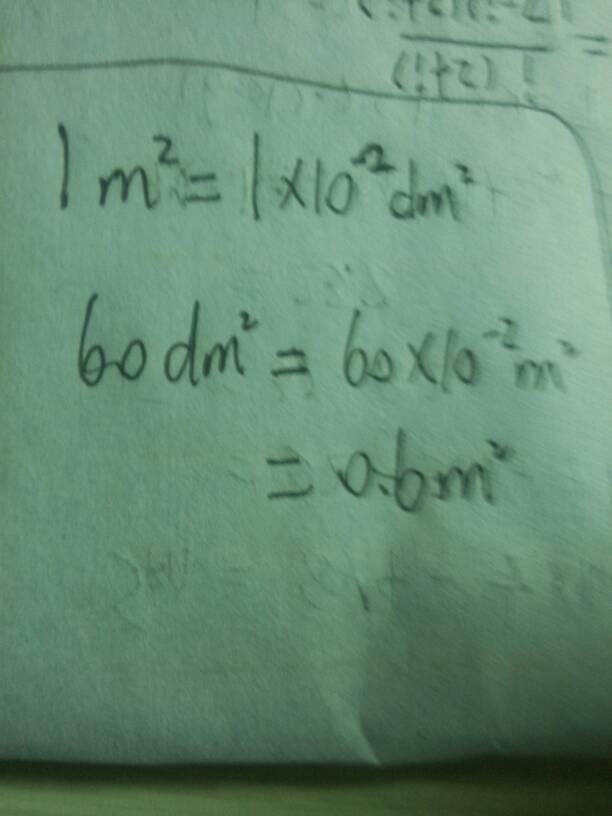 (!+2)
1 m² = 1×10⁻² dm²
60 dm² = 60×10⁻² m²
= 0.6m²